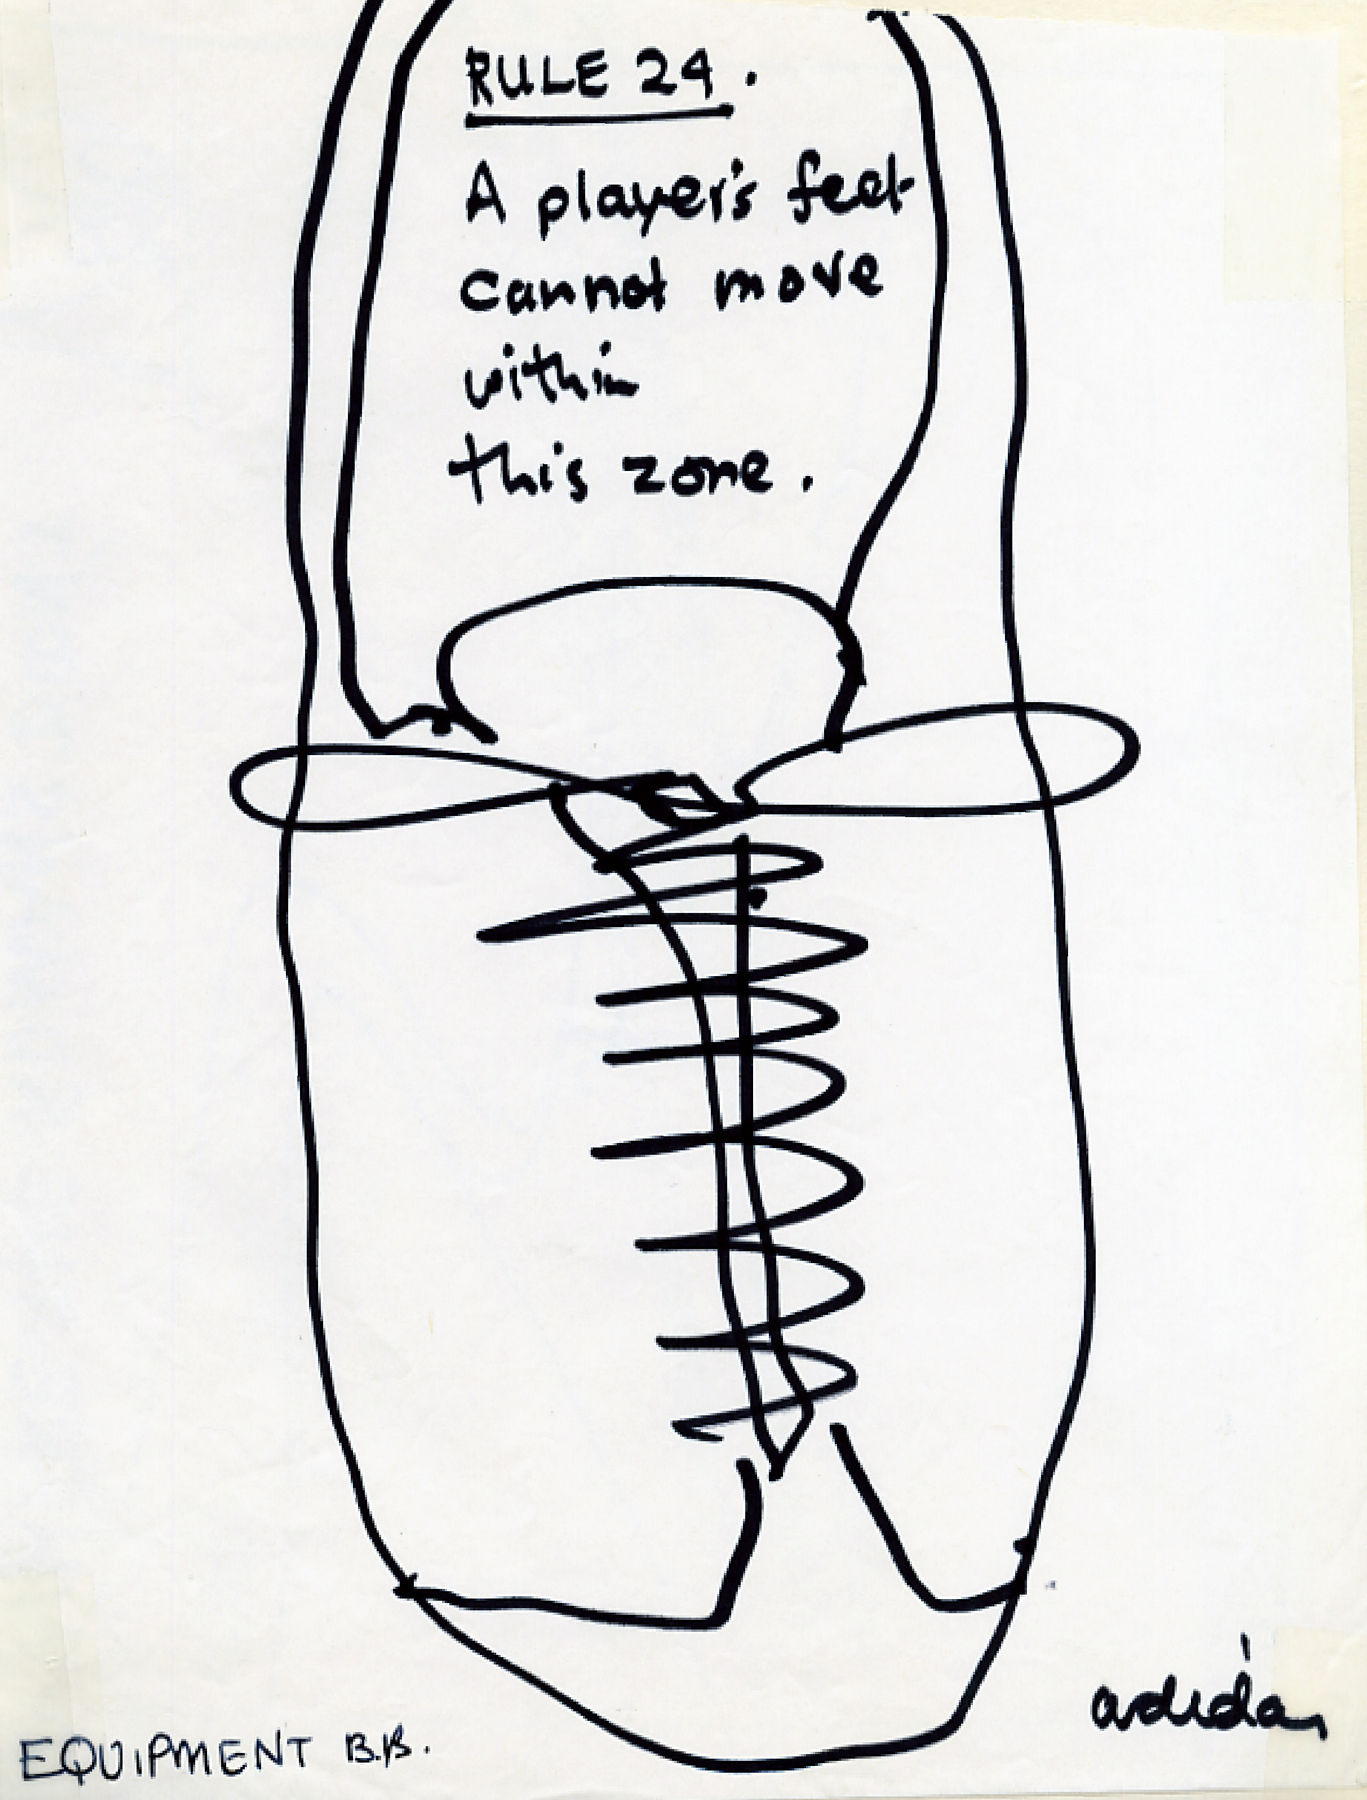 RULE 24.
A player's feet
cannot move
within
this zone.
adidas
EQUIPMENT B.B.